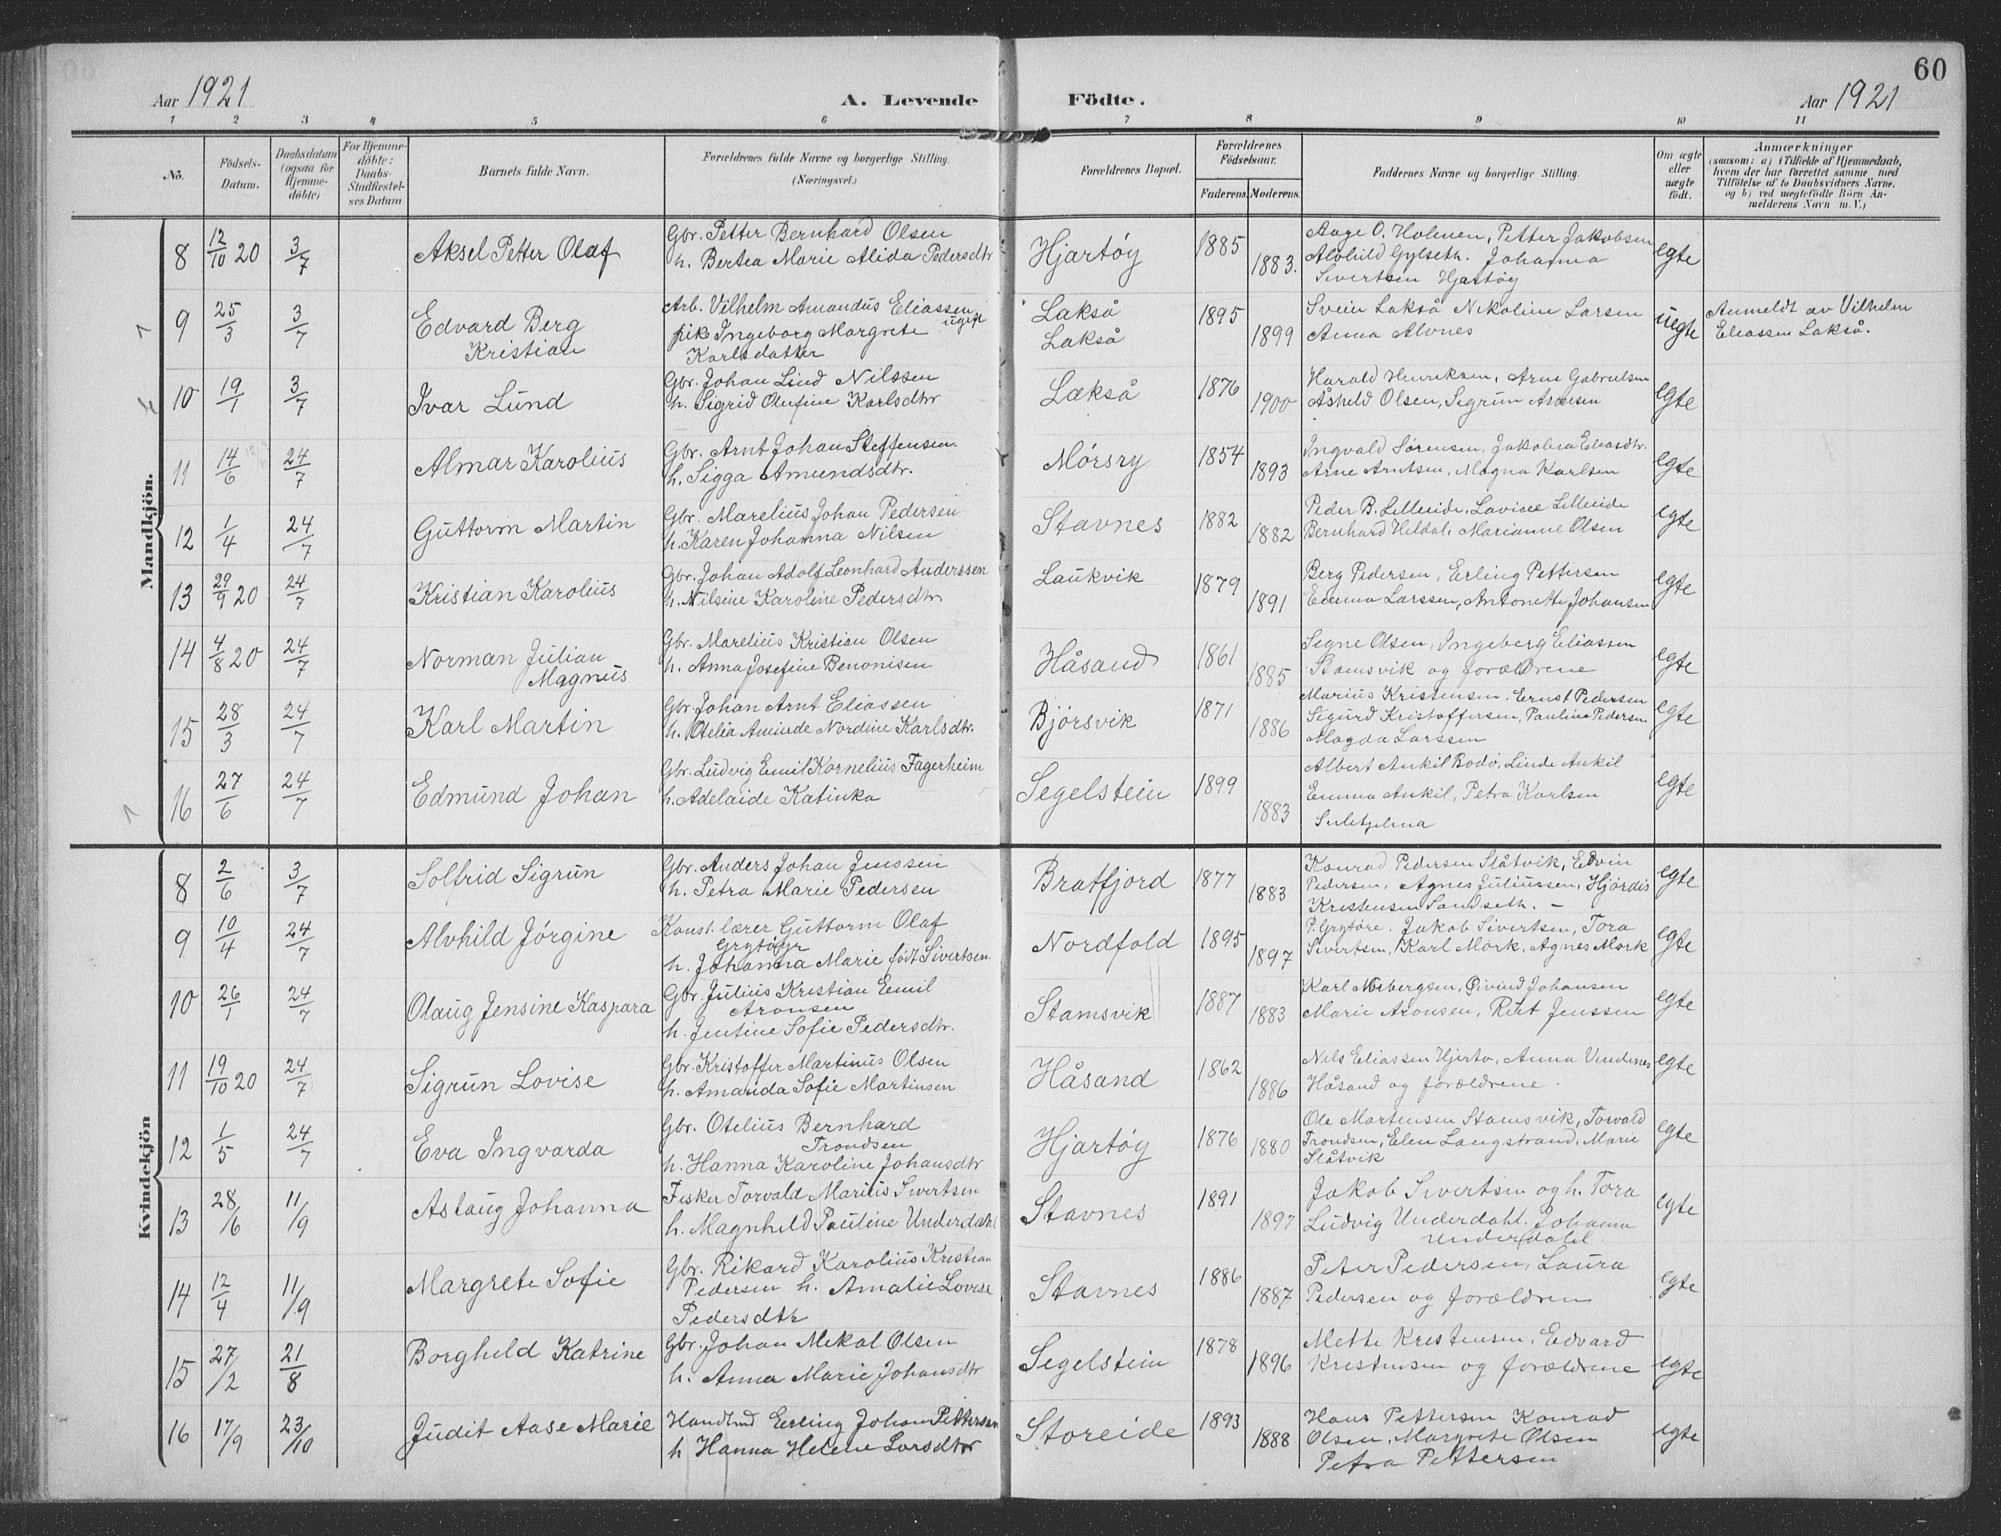 60
Aar 1921
A. Levende Födte.
Aar 1921
1 2 3 4 5 6 7 8 9 10 11
No.
Födsels-Datum.
Daabsdatum (ogsaa for Hjemmedöbte)
For Hjemmedöbte: Daabs-Stadfæstelses Datum
Barnets fulde Navn.
Forældrenes fulde Navne og borgerlige Stilling. (Næringsvei.)
Forældrenes Bopæl.
Forældrenes Födselsaar.
Faderens. Moderens.
Faddernes Navne og borgerlige Stilling.
Om ægte eller uægte födt.
Anmærkninger
(saasom: a) i Tilfælde af Hjemmedaab,
hvem der har forrettet samme, med
Tilföielse af to Daabsvidners Navne,
og b) ved uægtefödte Börn An-
melderens Navn m. V.)
Mandkjön.
8 12/10 20 3/7 Aksel Petter Olaf
Gbr. Petter Bernhard Olsen
h. Bertea Marie Alida Pedersdtr
Hjartøy 1885 1883.
Aage O. Holmen, Petter Jakobsen
Alvhild Gylseth. Johanna
Sivertsen Hjartøy
egte
9 25/3 3/7 Edvard Berg
Kristian
Arb. Vilhelm Amandus Eliassen
pike Ingeborg Margrete ugift
Karlsdatter
Lakså
Lakså
1895 1899
Svein Lakså Nikoline Larsen
Anna Alvnes
uegte
Anmeldt av Vilhelm
Eliassen Lakså.
10 19/1 3/7 Ivar Lund
Gbr. Johan Lind Nilssen
h. Sigrid Olufine Karlsdtr
Lakså 1876 1900
Harald Henriksen, Arne Gabrielsen
Åshild Olsen, Sigrun Aronsen
egte
11 14/6 24/7 Almar Karolius
Gbr. Arnt Johan Steffensen.
h. Sigga Amundsdtr.
Mørsry 1854 1893
Ingvald Sørensen, Jakobea Eliasdtr.
Arne Arntsen, Magna Karlsen
egte
12 1/4 24/7 Guttorm Martin
Gbr. Marelius Johan Pedersen
h. Karen Johanna Nilsen
Stavnes 1882 1882
Peder B. Lilleeide, Lovise Lilleeide
Bernhard Heldal, Marianne Olsen
egte
13 29/9 20 24/7 Kristian Karolius
Gbr. Johan Adolf Leonhard Anderssen
h. Nilsine Karoline Pedersdtr
Laukvik 1879 1891
Berg Pedersen, Erling Pettersen
Emma Larssen, Antonette Johansen
egte
14 4/8 20 24/7 Norman Julian
Magnus
Gbr. Marelius Kristian Olsen
h. Anna Josefine Benonisen
Håsand 1861 1885
Signe Olsen, Ingeberg Eliassen
Stamsvik og forældrene
egte
15 28/3 24/7 Karl Martin
Gbr. Johan Arnt Eliassen
h. Otelia Aminde Nordine Karlsdtr.
Bjørsvik 1871 1886
Marius Kristensen, Ernst Pedersen
Sigurd Kristoffersen, Pauline Pedersen
Magda Larssen
egte
16 27/6 24/7 Edmund Johan
Gbr. Ludvig Emil Kornelius Fagerheim
h. Adelaide Katinka
Segelstein 1899 1883
Albert Ankil Bodø, Linde Ankil
Emma Ankil, Petra Karlsen
Sulitjelma
egte
Kvindekjön
8 2/6 3/7 Solfrid Sigrun
Gbr. Anders Johan Jenssen
h. Petra Marie Pedersen
Bratfjord 1877 1883
Konrad Pedersen Slåtvik, Edvin
Pedersen, Agnes Juliussen, Hjørdis
Kristensen Sandseth. –
egte
9 10/4 24/7 Alvhild Jørgine
Konst. lærer Guttorm Olaf
Grytøyr
h. Johanna Marie født Sivertsen
Nordfold 1895 1897
P. Grytøre. Jakob Sivertsen, Tora
Sivertsen, Karl Mørk, Agnes Mørk
egte
10 26/1 24/7 Olaug Jensine Kaspara
Gbr. Julius Kristian Emil
Aronsen
h. Jentine Sofie Pedersdtr.
Stamsvik 1887 1883
Karl Norbergsen, Øivind Johansen
Marie Aronsen, Rut Jenssen
egte
11 19/10 20 24/7 Sigrun Lovise
Gbr. Kristoffer Martinus Olsen
h. Amanda Sofie Martinsen
Håsand 1862 1886
Nils Eliassen Hjertø, Anna Vendenes
Håsand og forældrene.
egte
12 1/5 24/7 Eva Ingvarda
Gbr. Otelius Bernhard
Trondsen
h. Hanna Karoline Johansdtr
Hjartøy 1876 1880
Ole Martensen Stamsvik, Torvald
Trondsen, Elen Langstrand, Marie
Slåtvik
egte
13 28/6 11/9 Aslaug Johanna
Fisker Torvald Marius Sivertsen
h. Magnhild Pauline Underdahl
Stavnes 1891 1897
Jakob Sivertsen og h. Tora
Ludvig Underdahl. Johanna
Underdahl.
egte
14 12/4 11/9 Margrete Sofie
Gbr. Rikard Karolius Kristian
Pedersen h. Amalie Lovise
Pedersdtr
Stavnes 1886 1887
Peter Pedersen, Laura
Pedersen og forældren
egte
15 27/2 21/8 Borghild Katrine
Gbr. Johan Mekal Olsen
h. Anna Marie Johansdtr
Segelstein 1878 1896
Mette Kristensen, Edvard
Kristensen og forældrene
egte
16 17/9 23/10 Judit Aase Marie
Handlmd Erling Johan Pettersen
h Hanna Helene Larsdtr
Storeide 1893 1888
Hans Pettersen Konrad
Olsen, Margrete Olsen
Petra Pettersen
egte